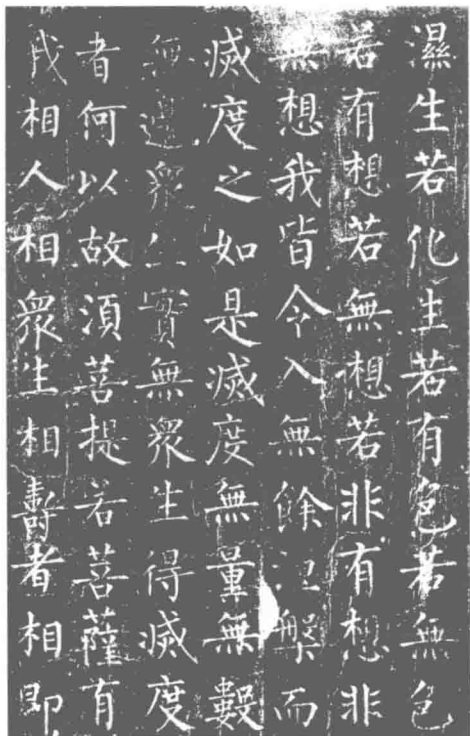 濕生若化生若有色若無色
若有想若無想若非有想非
無想我皆令入無餘涅槃而
滅度之如是滅度無量無數
無邊衆生實無衆生得滅度
者何以故須菩提若菩薩有
我相人相衆生相壽者相即